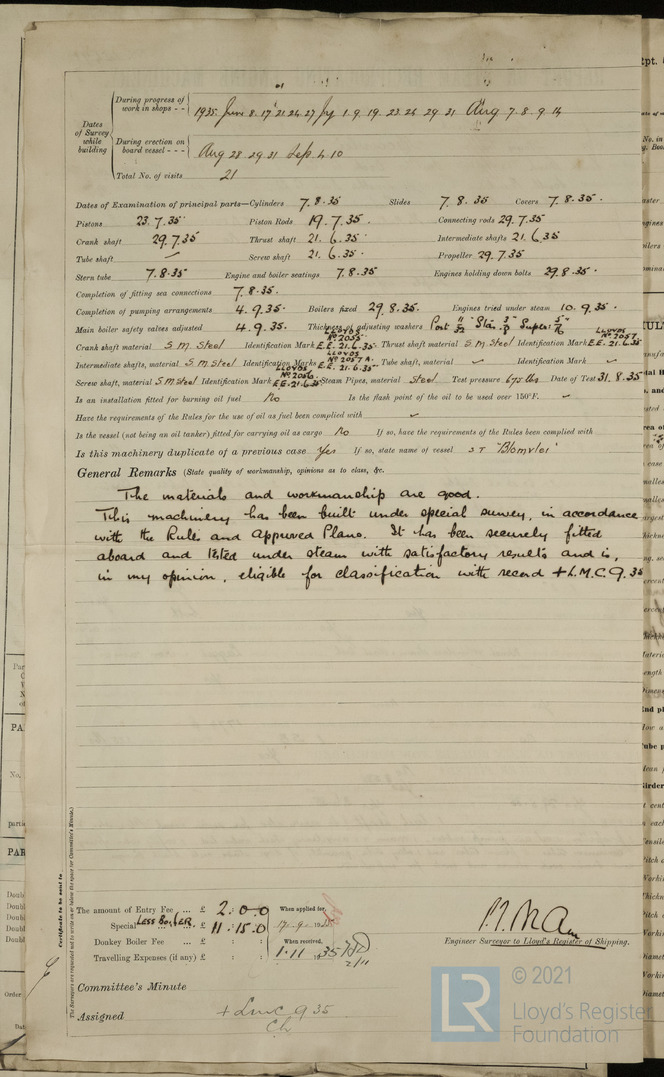 During progress of work in shops - - 1935. June 8. 17. 21. 24. 27 July 1. 9. 19. 23. 26. 29. 31 Aug 7. 8. 9. 14
Dates of Survey while building
During erection on board vessel - - - Aug 28. 29. 31 Sep. 4. 10
Total No. of visits 21
Dates of Examination of principal parts—Cylinders 7. 8. 35 Slides 7. 8. 35 Covers 7. 8. 35.
Pistons 23. 7. 35 Piston Rods 19. 7. 35. Connecting rods 29. 7. 35
Crank shaft 29. 7. 35 Thrust shaft 21. 6. 35. Intermediate shafts 21. 6. 35
Tube shaft ✓ Screw shaft 21. 6. 35. Propeller 29. 7. 35
Stern tube 7. 8. 35 Engine and boiler seatings 7. 8. 35 Engines holding down bolts 29. 8. 35.
Completion of fitting sea connections 7. 8. 35.
Completion of pumping arrangements 4. 9. 35. Boilers fixed 29. 8. 35. Engines tried under steam 10. 9. 35.
Main boiler safety valves adjusted 4. 9. 35. Thickness of adjusting washers Port Star Super
Crank shaft material S. M. Steel Identification Mark LLOYDS No 2055 E.E. 21.6.35. Thrust shaft material S.M. Steel Identification Mark LLOYDS No 2057 E.E. 21.6.35
Intermediate shafts, material S.M Steel Identification Marks LLOYDS No 2057A. E.E. 21.6.35. Tube shaft, material ✓ Identification Mark ✓
Screw shaft, material S M Steel Identification Mark LLOYDS No 2056 E.E. 21.6.35 Steam Pipes, material Steel Test pressure 675 lbs Date of Test 31. 8. 35
Is an installation fitted for burning oil fuel No Is the flash point of the oil to be used over 150°F. ✓
Have the requirements of the Rules for the use of oil as fuel been complied with ✓
Is the vessel (not being an oil tanker) fitted for carrying oil as cargo No If so, have the requirements of the Rules been complied with
Is this machinery duplicate of a previous case Yes If so, state name of vessel S T "Blomvlei"
General Remarks (State quality of workmanship, opinions as to class, &c.
The materials and workmanship are good.
This machinery has been built under special survey, in accordance
with the Rules and approved Plans. It has been securely fitted
aboard and tested under steam with satisfactory results and is,
in my opinion, eligible for classification with record + L.M.C. 9. 35
Certificate to be sent to
The Surveyors are requested not to write on or below the space for Committee's Minute.
The amount of Entry Fee ... £ 2 : 0 : 0 When applied for,
Special LESS BOILER ... £ 11 : 15. 0
Donkey Boiler Fee ... £ : : When received,
Travelling Expenses (if any) £ : : 1. 11 1935 2/11
Engineer Surveyor to Lloyd's Register of Shipping.
Committee's Minute
Assigned + LMC 9 35
CL
LR
© 2021
Lloyd's Register
Foundation